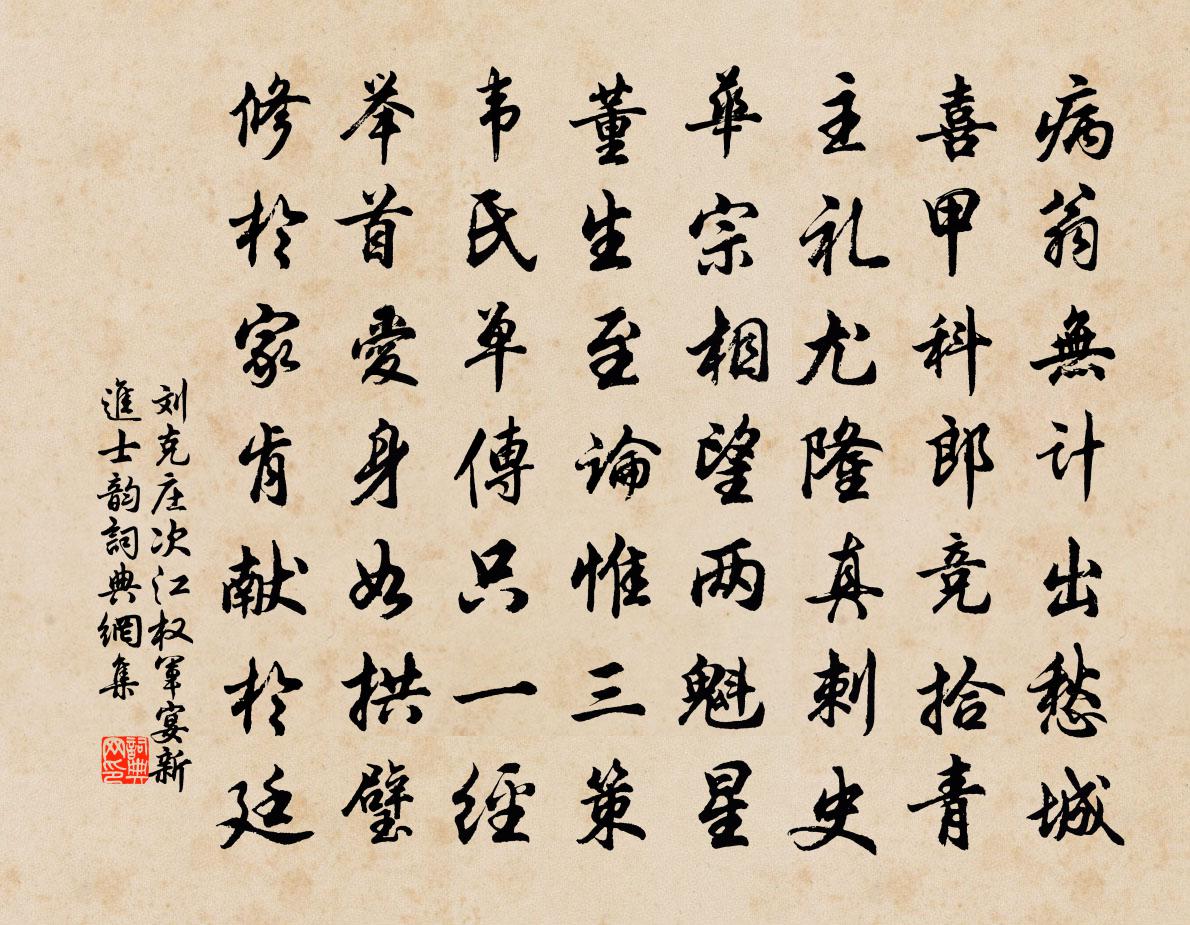 病翁無计出愁城
喜甲科郎竞拾青
主礼尤隆真刺史
華宗相望两魁星
董生至論惟三策
韦氏单傳只一经
举首愛身如拱璧
修於家肯献於廷
刘克庄次江权军宴新
進士韵詞典網集
詞典网印